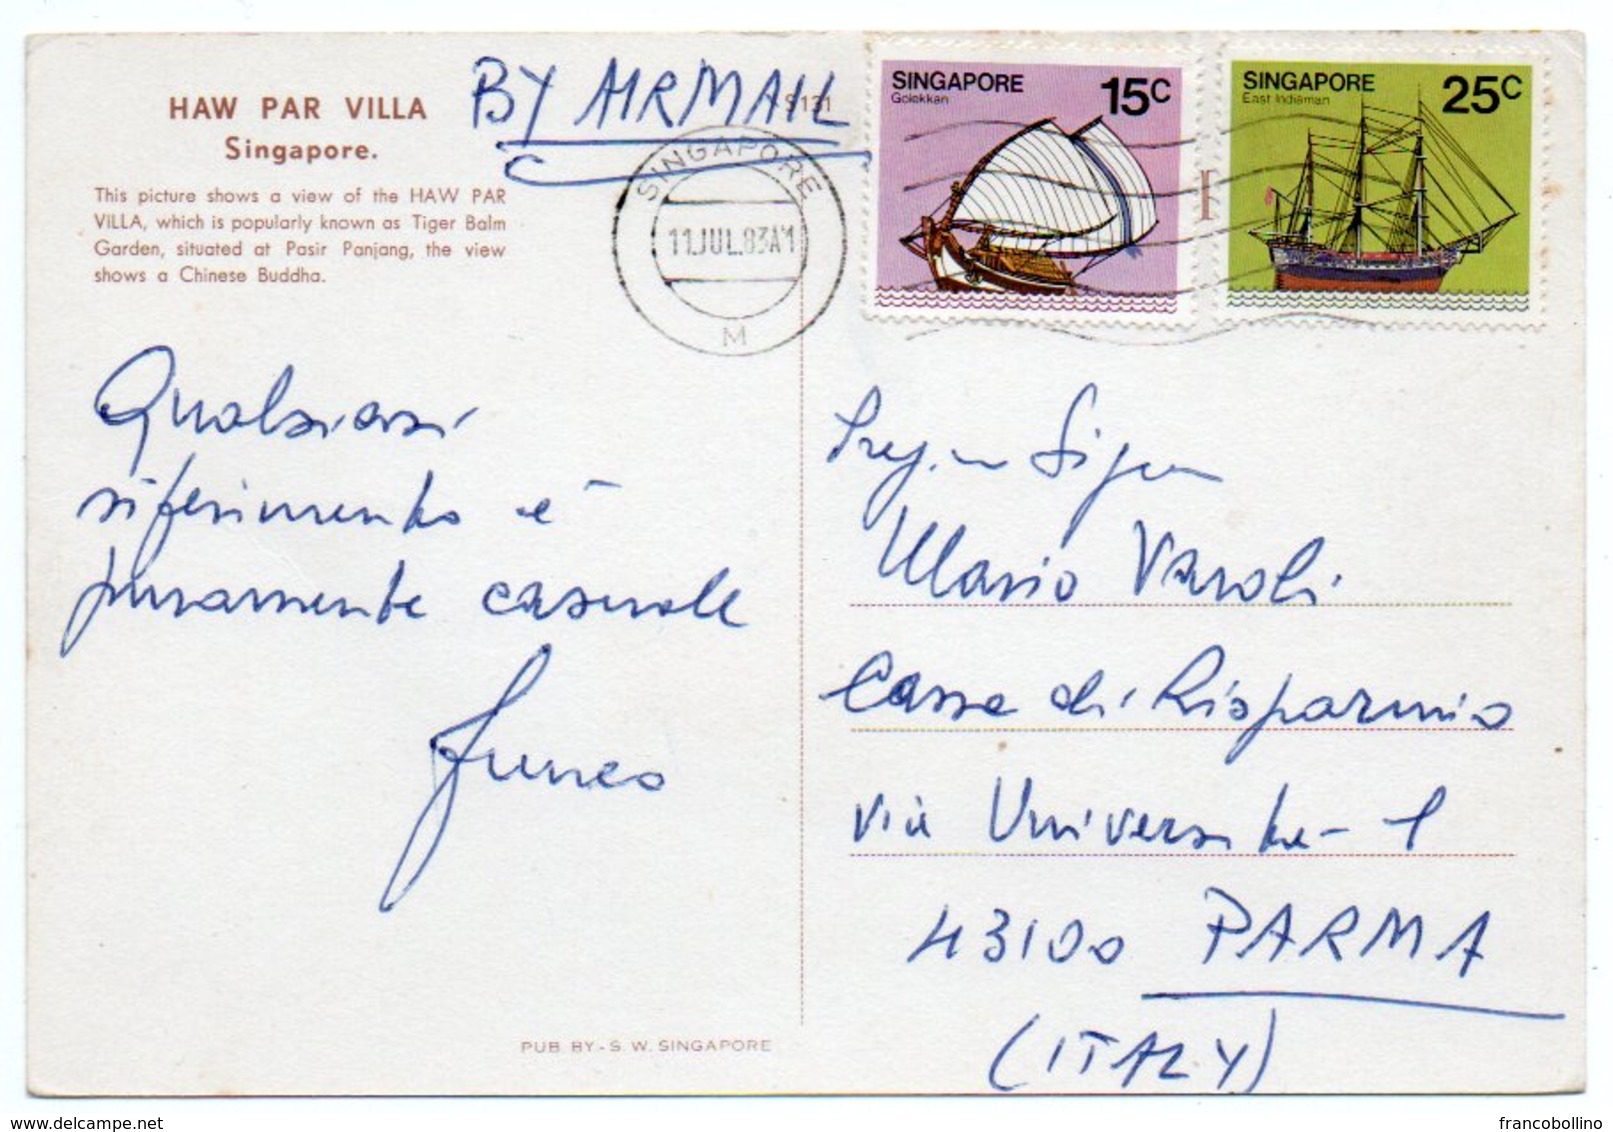 HAW PAR VILLA
Singapore.
This picture shows a view of the HAW PAR
VILLA, which is popularly known as Tiger Balm
Garden, situated at Pasir Panjang, the view
shows a Chinese Buddha.
BY AIRMAIL
S131
SINGAPORE
11.JUL.83A1
M
SINGAPORE 15C
Golekkan
SINGAPORE 25C
East Indiaman
Qualsiasi
riferimento è
puramente casuale
Mario Varoli
Cassa di Risparmio
via Università - 1
43100 PARMA
(ITALY)
PUB BY - S. W. SINGAPORE
francobollino